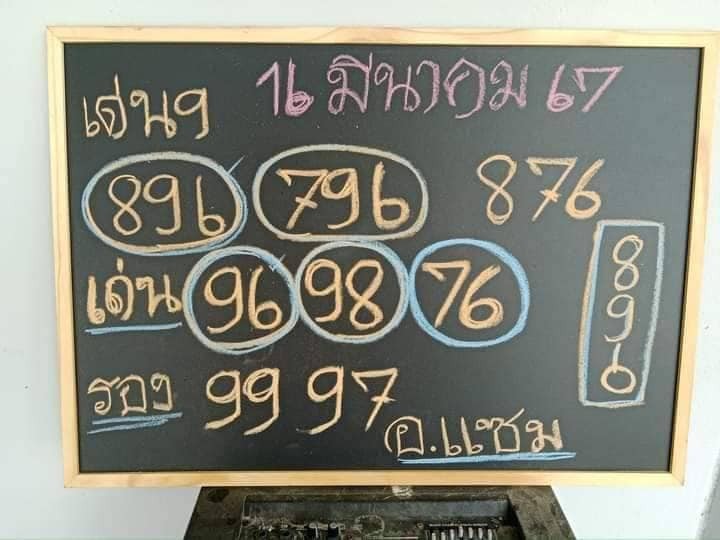 16 มีนาคม 67
เด่นๆ
896 796 876
เด่น 96 98 76
8
9
6
รอง 99 97
อ.แชม